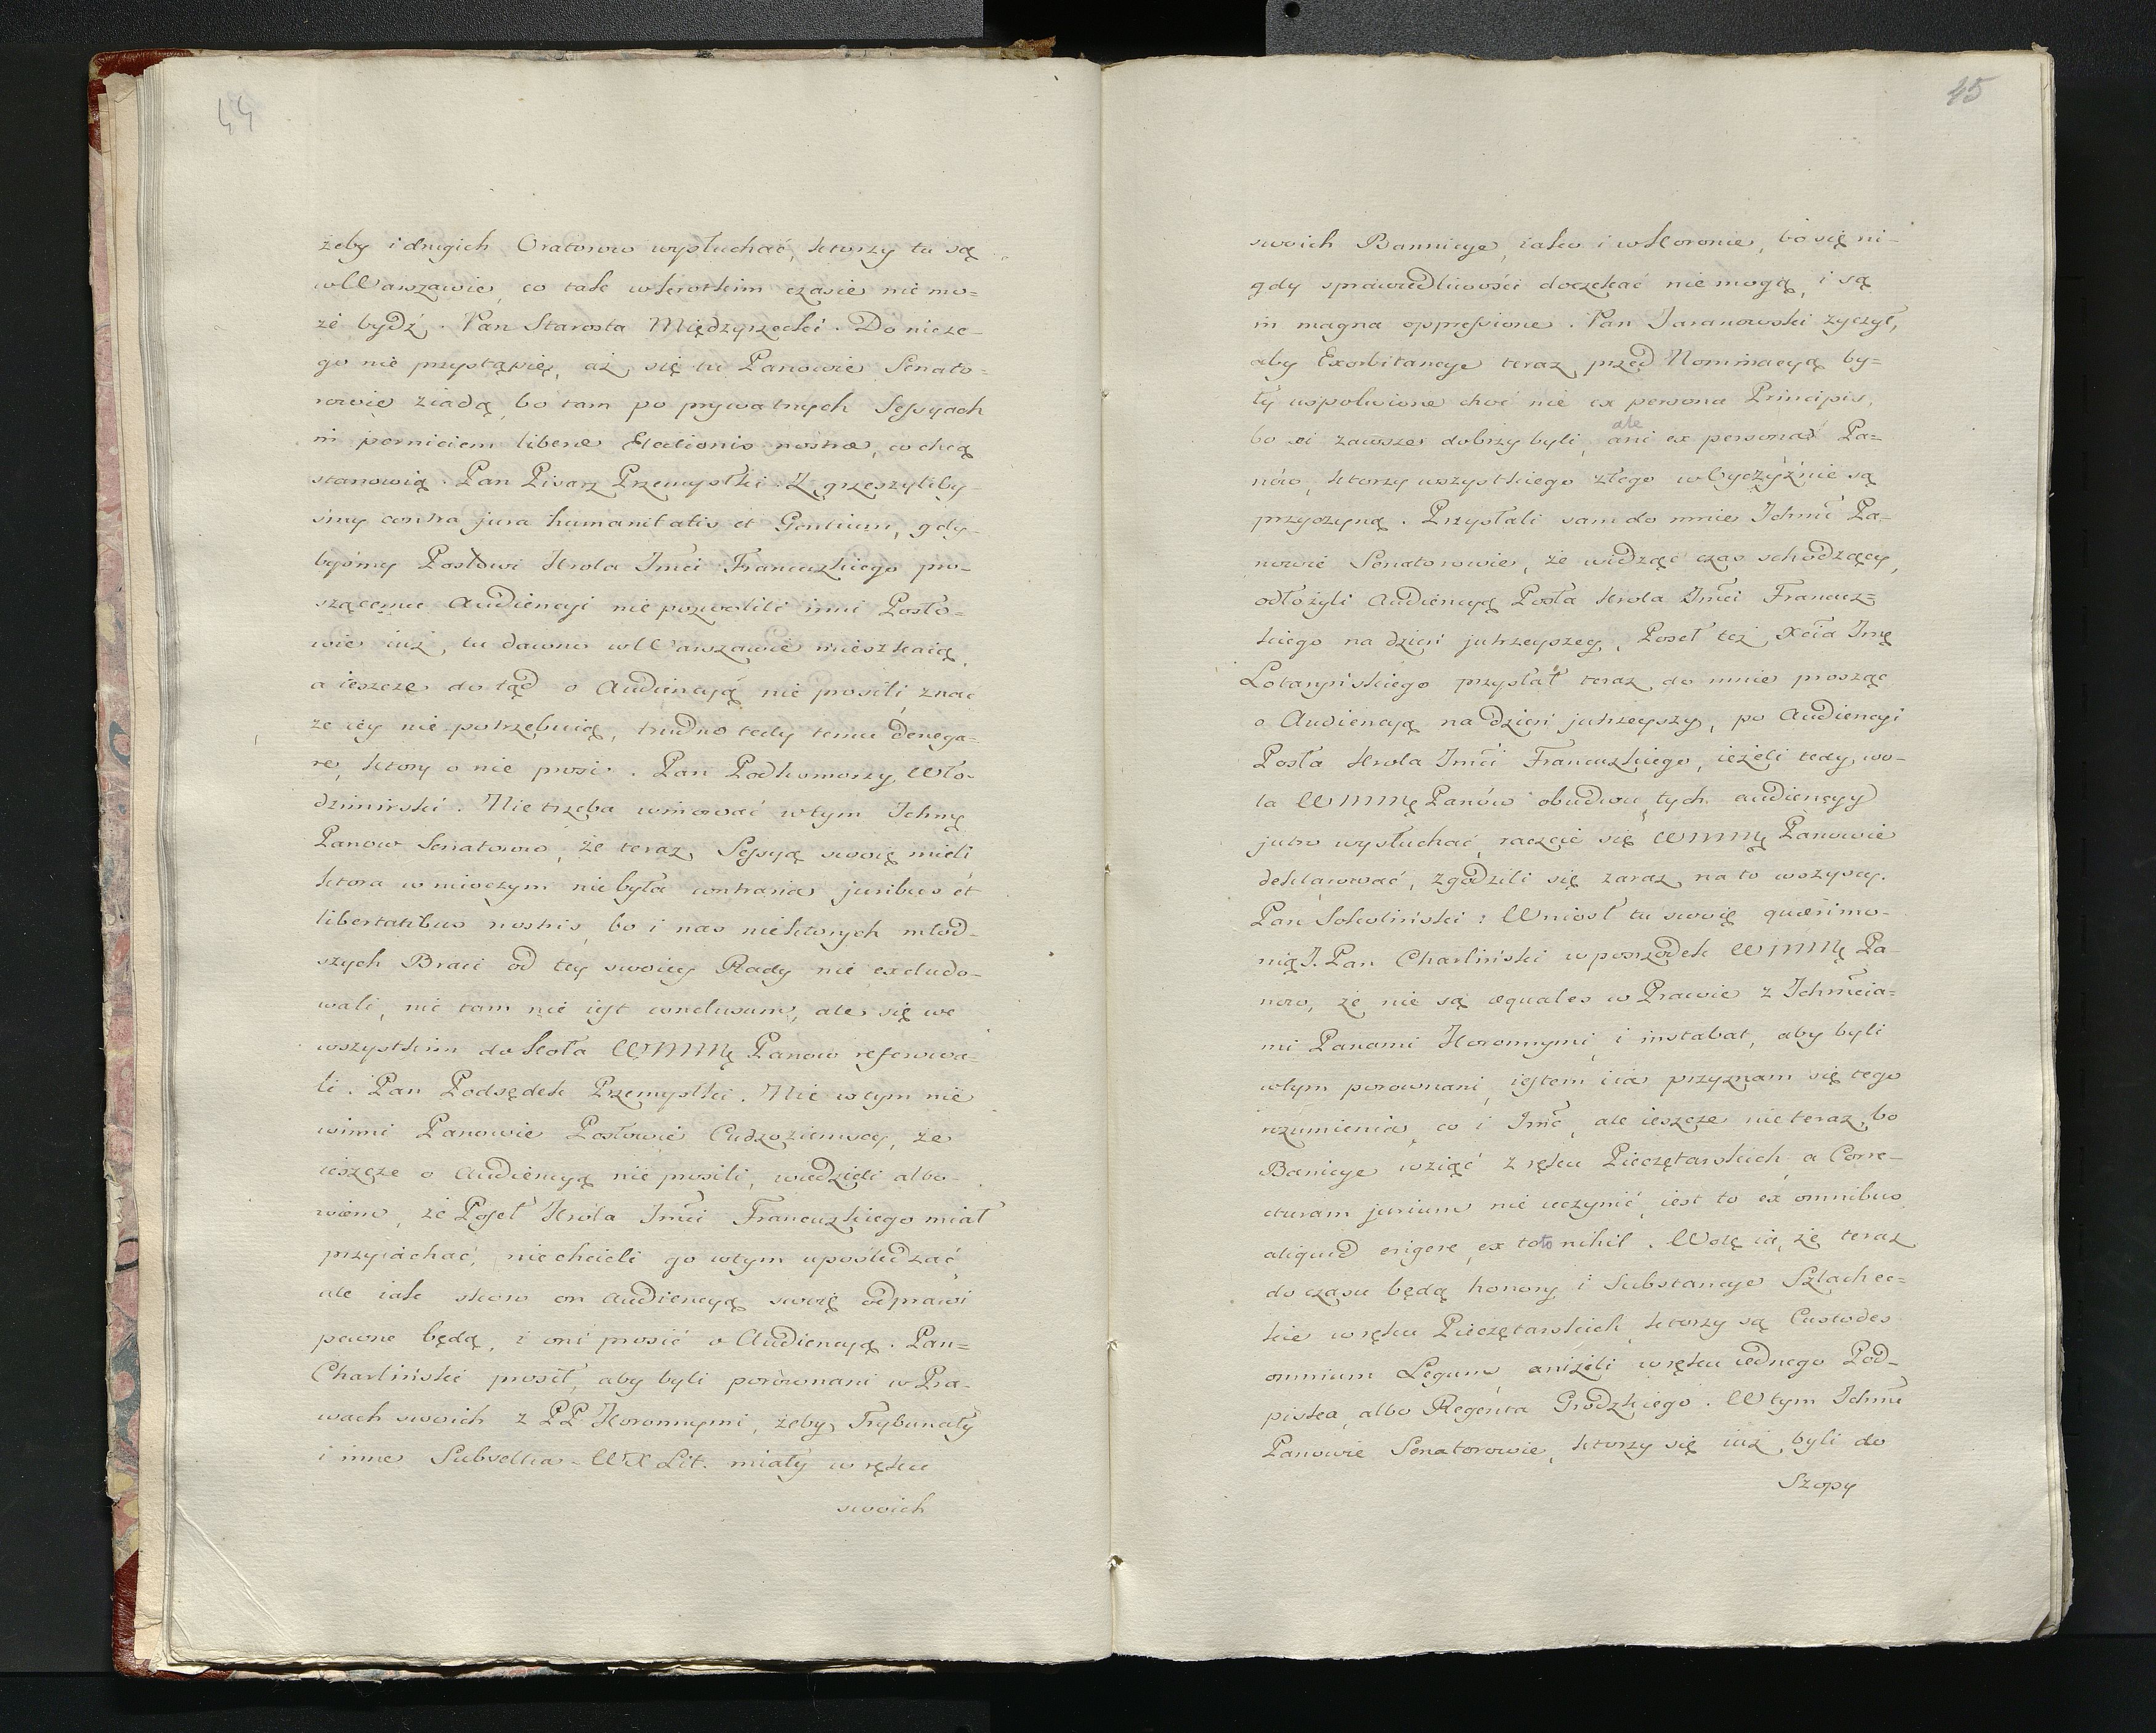 44
żeby i drugich Oratorow wysłuchać, ktorzy tu są
w Warszawie, co tak wkrotkim czasie nie mo=
że bydź. Pan Starosta Międzyrzecki. Do nicze-
go nie przystąpię, aż się tu Panowie Senato=
rowie ziadą, bo tam po prywatnych Sessyach
in perniciem liberæ Electionis nostræ, co chcą
stanowią. Pan Pisarz Przemyski. Zgrzeszyliby-
smy contra jura humanitatis et Gentium, gdy-
byśmy Posłowi Krola Jmci Francuzkiego pro-
szącemu Audiencyi nie pozwolili inni Posło=
wie iuż tu dawno w Warszawie mieszkaią,
a ieszcze do tąd o Audiencyą nie prosili, znać
że iey nie potrzebuią, trudno tedy temu denega-
re, ktory o nie prosi. Pan Podkomorzy Wło-
dzimirski. Nie trzeba winować wtym Ichmę
Panow Senatorow, że teraz Sessyą swoię mieli
ktora w niwczym nie była contraria juribus et
libertatibus nostris, bo i nas niektorych młod-
szych Braci od tey swoiey Rady nie excludo-
wali, nic tam nie iest conclusum, ale się we
wszystkim do Koła WMMę Panow referowa-
li. Pan Podsędek Przemyski. Nic wtym nie
winni Panowie Posłowie Cudzoziemscy, że
ieszcze o Audiencyą nie prosili, wiedzieli albo-
wiem, że Poseł Krola Jmci Francuzkiego miał
przyiachać, niechcieli go wtym upośledzać,
ale iak skoro on Audiencyą swoię odprawi
pewne będą, i oni prosić o Audiencyą. Pan=
Charliński prosił, aby byli porownani w Pra-
wach swoich z PP. Koronnymi, żeby Trybunały
i inne Subsellia WX Lit. miały w ręku
swoich
45
swoich Bannicye, iako i w Koronie, bo się ni-
gdy sprawiedliwości doczekać nie mogą, i są
in magna oppressione. Pan Jaranowski życzył,
aby Exorbitancye teraz przed Nominacyą by=
ły uspokoione choć nie ex persona Principis,
bo ci zawsze dobrzy byli, ani ex persona Pa=
ale
now, ktorzy wszystkiego złego w Oyczyźnie są
przyczyną. Przysłali sam do mnie Ichmć Pa-
nowie Senatorowie, że widząc czas schodzący,
odłożyli Audiencyą Posła Krola Jmci Francuz=
kiego na dzień jutrzeyszey, Poseł też Xcia Jmę
Lotaryńskiego przysłał teraz do mnie prosząc
o Audiencyą na dzień jutrzeyszy, po Audiencyi
Posła Krola Jmci Francuzkiego, ieżeli tedy wo-
la WMMę Panów obudwu tych audiencyy
jutro wysłuchać, raczcie się WMMę Panowie
deklarować, zgodzili się zaraz na to wszyscy.
Pan Sokoliński: Wniosł tu swoię quærimo-
nią J. Pan Charliński w posrzodek WMMę Pa-
now, że nie są æquales w Prawie z Ichmcia=
mi Panami Koronnymi, i instabat, aby byli
wtym porownani, iestem i ia przyznam się tego
rozumienia, co i Jmć, ale ieszcze nie teraz, bo
Banicye wziąć z ręku Pieczętarskich, a Corre-
cturam jurium nie uczynić, iest to ex omnibus
aliquid erigere, ex toto nihil. Wolę ia, że teraz
do czasu będą honory i Substancye Szlachec=
kie w ręku Pieczętarskich, ktorzy są Custodes
omnium Legum, aniżeli w ręku iednego Pod-
piska, albo Regenta Grodzkiego. Wtym Ichmć
Panowie Senatorowie, ktorzy się iuż byli do
Szopy